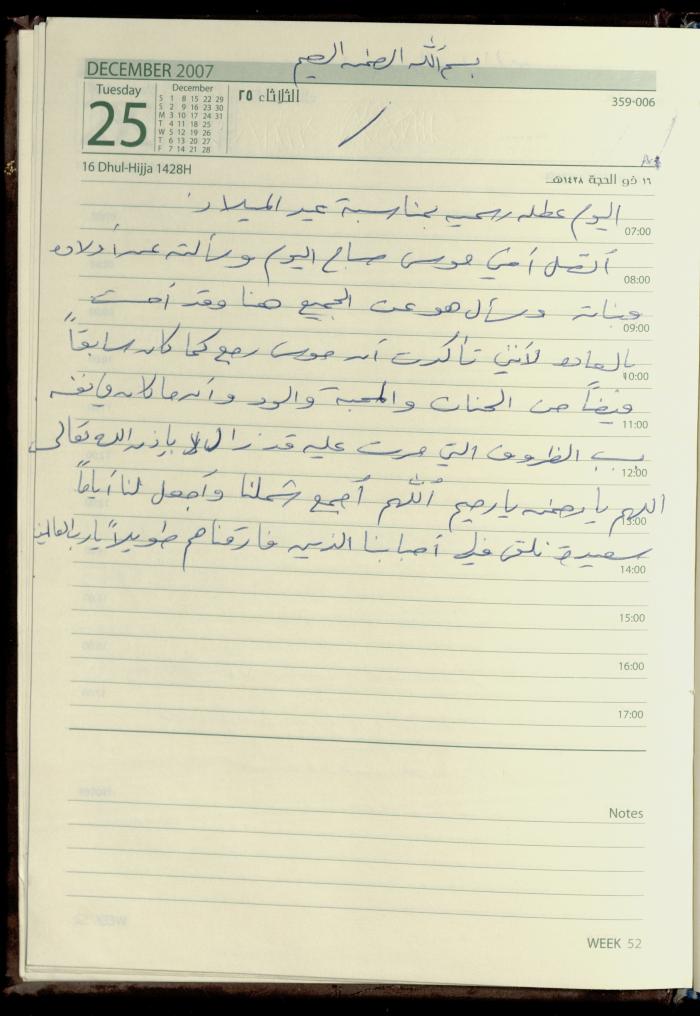 بسم الله الرحمن الرحيم
DECEMBER 2007
Tuesday
25
December
S 1 8 15 22 29
S 2 9 16 23 30
M 3 10 17 24 31
T 4 11 18 25
W 5 12 19 26
T 6 13 20 27
F 7 14 21 28
الثلاثاء ٢٥
359-006
16 Dhul-Hijja 1428H
١٦ ذو الحجة ١٤٢٨هـ
اليوم عطله رسميه بمناسبة عيد الميلاد.
07:00
أتصل أخي موسى صباح اليوم وسألته عن أولاده
08:00
وبناته وسأل هو عن الجميع هنا وقد أحست
09:00
بالسعاده لأنني تأكدت أنه موسى رجع كما كان سابقاً
10:00
فيضاً من الحنان والمحبة والود وأنه ما كان
11:00
بسبب الظروف التي مرت عليه قد زال بإذن الله تعالى
12:00
اللهم يا رحمن يا رحيم أللهم أجمع شملنا وأجعل لنا أياماً
13:00
سعيدة نلتقي فيها أحبابنا الذين فارقناهم طويلاً يارب العالمين
14:00
15:00
16:00
17:00
Notes
WEEK 52